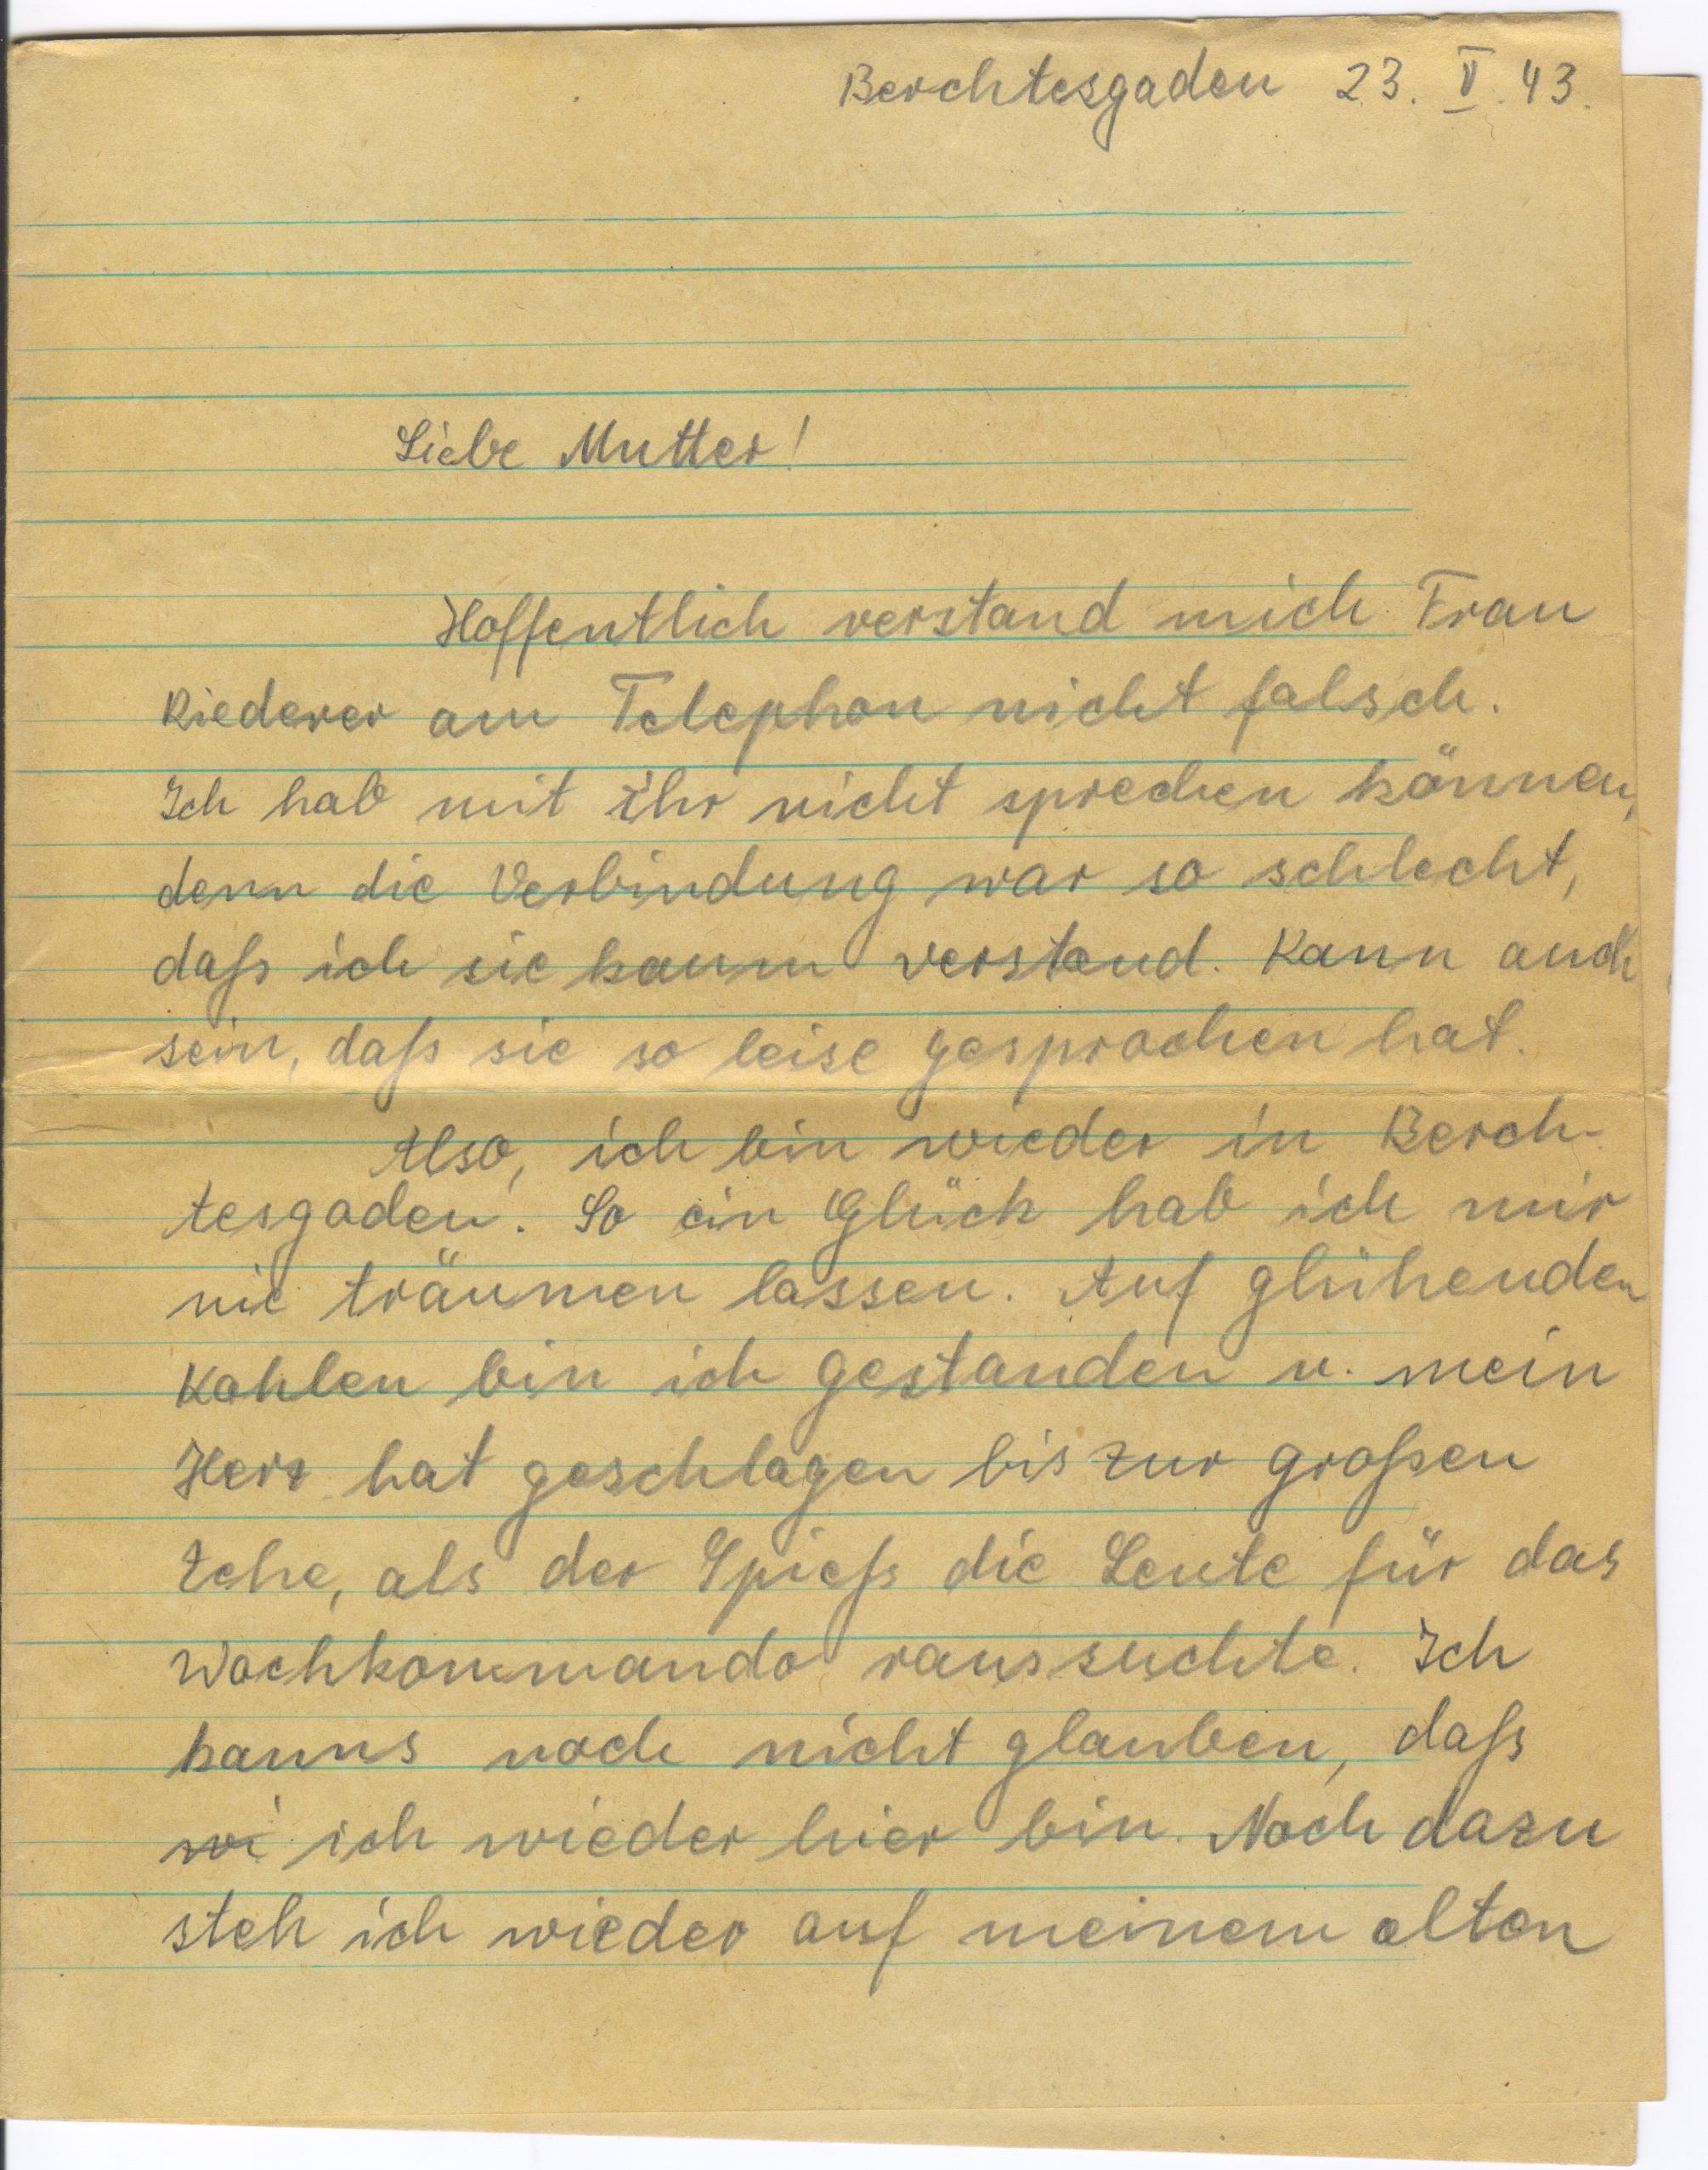 Berchtesgaden 23. V. 43.
Liebe Mutter!
Hoffentlich verstand mich Frau
Riederer am Telephon nicht falsch.
Ich hab mit ihr nicht sprechen können,
denn die Verbindung war so schlecht,
daß ich sie kaum verstand. Kann auch
sein, daß sie so leise gesprochen hat.
Also, ich bin wieder in Berch-
tesgaden. So ein Glück hab ich mir
nie träumen lassen. Auf glühenden
Kohlen bin ich gestanden u. mein
Herz hat geschlagen bis zur großen
Zehe, als der Spieß die Leute für das
Wachkommando raussuchte. Ich
kanns noch nicht glauben, daß
wi ich wieder hier bin. Noch dazu
steh ich wieder auf meinem alten